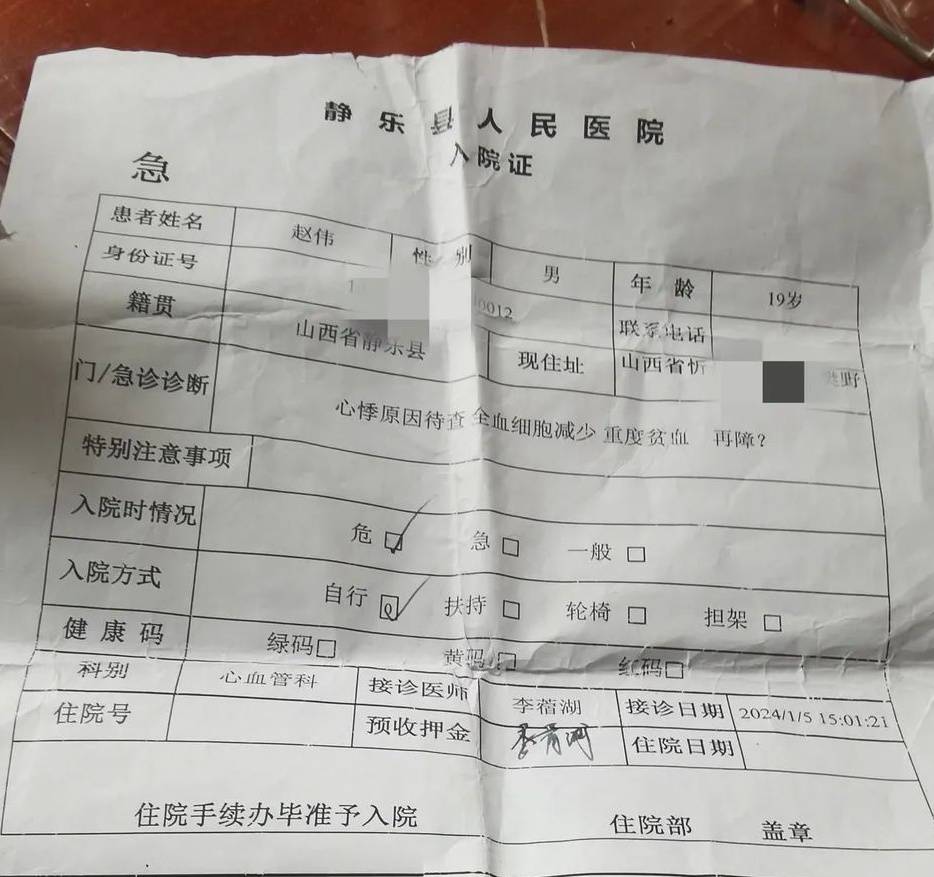 静乐县人民医院
入院证
急
患者姓名 赵伟 性别 男 年龄 19岁
身份证号 1 0012 联系电话
籍贯 山西省静乐县 现住址 山西省忻 野
门/急诊诊断 心悸原因待查 全血细胞减少 重度贫血 再障?
特别注意事项
入院时情况 危☑ 急□ 一般□
入院方式 自行☑ 扶持□ 轮椅□ 担架□
健康码 绿码□ 黄码□ 红码□
科别 心血管科 接诊医师 李蓿湖 接诊日期 2024/1/5 15:01:21
住院号 预收押金 住院日期
住院手续办毕准予入院 住院部 盖章